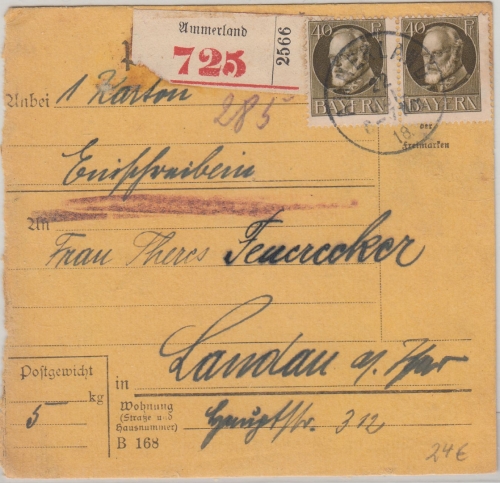 Ammerland
725
2566
40 Pf
BAYERN
40 Pf
BAYERN
22
18
der
Freimarken
Anbei 1 Karton
285
Einschreiben
An
Frau Theres Feuerecker
Landau a/ Isar
Postgewicht
5 kg
in
Wohnung
(Straße und
Hausnummer)
Hauptstr. 312
B 168
24€